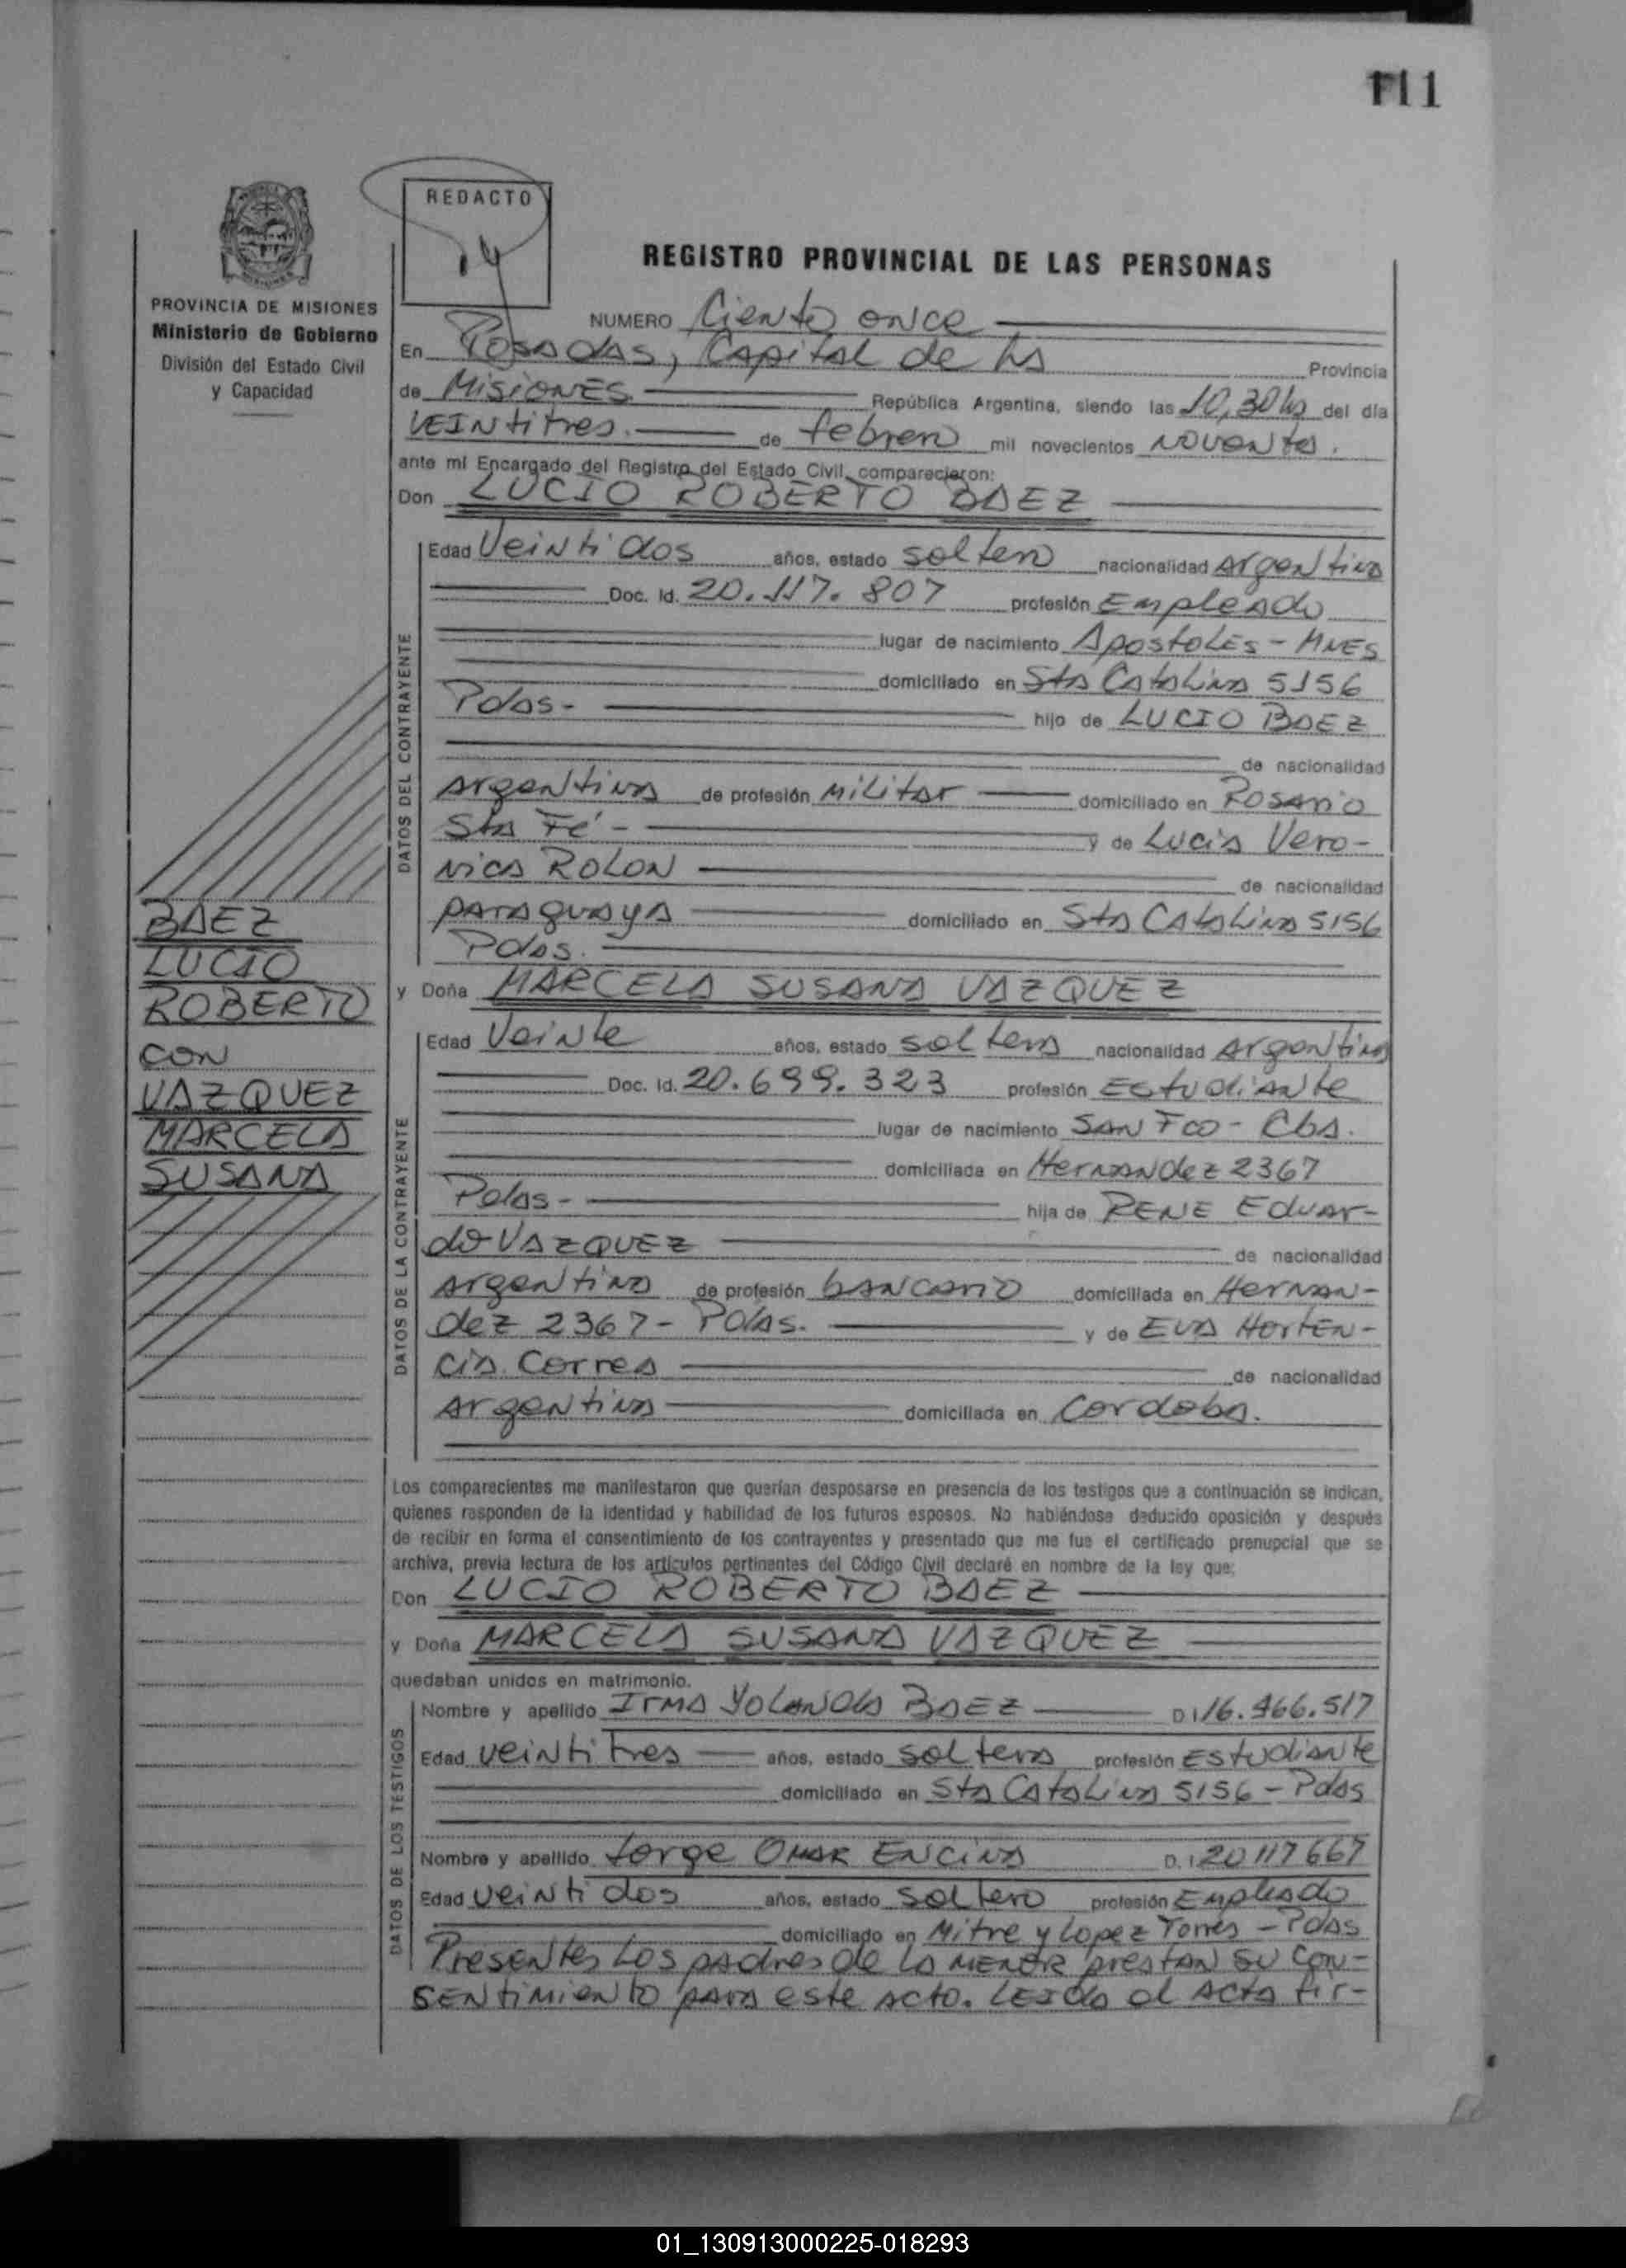 111
REDACTO
14
REGISTRO PROVINCIAL DE LAS PERSONAS
PROVINCIA DE MISIONES
Ministerio de Gobierno
División del Estado Civil
y Capacidad
NUMERO Ciento once
En Posadas, Capital de la Provincia
de Misiones República Argentina, siendo las 10,30 hs del día
VEINtitres. de febrero mil novecientos noventa.
ante mi Encargado del Registro del Estado Civil, comparecieron:
Don LUCIO ROBERTO BAEZ
DATOS DEL CONTRAYENTE
Edad Veintidos años, estado soltero nacionalidad Argentina
Doc. Id. 20.117.807 profesión Empleado
lugar de nacimiento Apostoles - Mnes
domiciliado en Sta Catalina 5156
Pdas- hijo de LUCIO BAEZ
de nacionalidad
Argentina de profesión Militar domiciliado en Rosario
Sta Fé - y de Lucia Vero-
nica ROLON de nacionalidad
paraguaya domiciliado en Sta Catalina 5156
Pdas.
BAEZ
LUCIO
ROBERTO
CON
VAZQUEZ
MARCELA
SUSANA
y Doña MARCELA SUSANA VAZQUEZ
DATOS DE LA CONTRAYENTE
Edad Veinte años, estado soltera nacionalidad Argentina
Doc. Id. 20.699.323 profesión Estudiante
lugar de nacimiento SAN Fco - Cba.
domiciliada en Hernandez 2367
Pdas- hija de RENE Eduar-
do VAZQUEZ de nacionalidad
Argentina de profesión bancario domiciliada en Hernan-
dez 2367 - Pdas. y de EVA Horten-
cia Correa de nacionalidad
Argentina domiciliada en Cordoba.
Los comparecientes me manifestaron que querían desposarse en presencia de los testigos que a continuación se indican,
quienes responden de la identidad y habilidad de los futuros esposos. No habiéndose deducido oposición y después
de recibir en forma el consentimiento de los contrayentes y presentado que me fue el certificado prenupcial que se
archiva, previa lectura de los artículos pertinentes del Código Civil declaré en nombre de la ley que:
Don LUCIO ROBERTO BAEZ
y Doña MARCELA SUSANA VAZQUEZ
quedaban unidos en matrimonio.
DATOS DE LOS TESTIGOS
Nombre y apellido Irma Yolanda BAEZ D I 16.966.517
Edad veintitres años, estado soltera profesión Estudiante
domiciliado en Sta Catalina 5156 - Pdas
Nombre y apellido Jorge Omar Encina D. I 20117667
Edad veintidos años, estado soltero profesión Empleado
domiciliado en Mitre y Lopez Torres - Pdas
Presentes los padres de la menor prestan su con-
sentimiento para este acto. Leida el Acta fir-
01_130913000225-018293